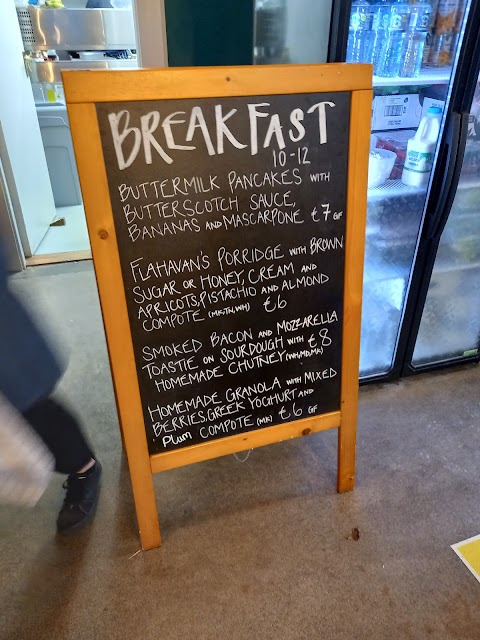 BREAKFAST
10-12
BUTTERMILK PANCAKES WITH
BUTTERSCOTCH SAUCE,
BANANAS AND MASCARPONE €7 GF
FLAHAVAN'S PORRIDGE WITH BROWN
SUGAR OR HONEY, CREAM AND
APRICOTS, PISTACHIO AND ALMOND
COMPOTE (MK,TN,WH) €6
SMOKED BACON AND MOZZARELLA
TOASTIE ON SOURDOUGH WITH €8
HOMEMADE CHUTNEY (WH,MD,MK)
HOMEMADE GRANOLA WITH MIXED
BERRIES, GREEK YOGHURT AND
Plum COMPOTE (MK) €6 GF